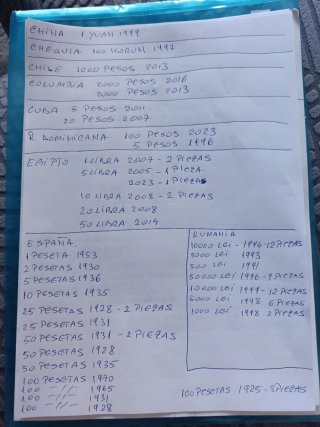 CHINA 1 YUAN 1999
CHEQUIA 100 KORUM 1997
CHILE 1000 PESOS 2013
COLUMBIA 2000 PESOS 2016
2000 PESOS 2013
CUBA 5 PESOS 2011
20 PESOS 2007
R DOMINICANA 100 PESOS 2023
5 PESOS 1996
EGIPTO 1 LIBRA 2007 - 2 PIEZAS
5 LIBRA 2005 - 1 PIEZA
2023 - 1 PIEZA
10 LIBRA 2008 - 2 PIEZAS
20 LIBRA 2008
50 LIBRA 2014
ESPAÑA
1 PESETA 1953
2 PESETAS 1930
5 PESETAS 1936
10 PESETAS 1935
25 PESETAS 1928 - 2 PIEZAS
25 PESETAS 1931
50 PESETAS 1931 - 2 PIEZAS
50 PESETAS 1928
50 PESETAS 1935
100 PESETAS 1970
100 -//- 1965
100 -//- 1931
100 -//- 1928
RUMANIA
10000 LEI - 1994 - 12 PIEZAS
5000 LEI 1993
500 LEI 1991
50000 LEI 1996 - 9 PIEZAS
10000 LEI 1999 - 12 PIEZAS
5000 LEI 1998 6 PIEZAS
1000 LEI 1998 2 PIEZAS
100 PESETAS 1925 - 3 PIEZAS